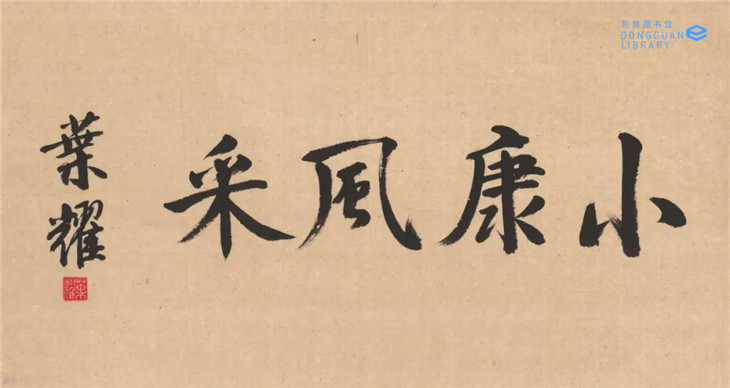 东莞图书馆
DONGGUAN
LIBRARY
小康風采
葉耀